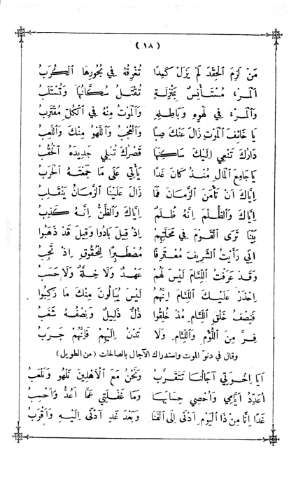 ( ١٨ )
مَن كَرِمَ الحِقدَ لَم يَزَل كَمِداً تُغرِقُهُ في بُحُورِهَا الكُرَبُ
المَرءُ مُستَأنِسٌ بِمَنزِلَةٍ تُقتَلُ سُكَّانُهَا وَتُستَلَبُ
وَالمَرءُ في لَهوِهِ وَبَاطِلِهِ وَالمَوتُ مِنهُ في الكُلِّ مُقتَرِبُ
يَا خَائِفَ المَوتِ زَالَ عَنكَ صِبَا وَالعُجبُ وَاللَّهوُ مِنكَ وَاللَّعِبُ
دَارُكَ تَنعَى إِلَيكَ سَاكِنَهَا قَصرُكَ تُبلي جَدِيدَهُ الحِقَبُ
يَا جَامِعَ المَالِ مُنذُ كَانَ غَداً يَأتي عَلَى مَا جَمَعتَهُ الحَرَبُ
إِيَّاكَ أَن تَأمَنَ الزَّمَانَ فَمَا زَالَ عَلَينَا الزَّمَانُ يَنقَلِبُ
إِيَّاكَ وَالظُّلمَ إِنَّهُ ظُلَمٌ إِيَّاكَ وَالظَّنَّ إِنَّهُ كَذِبُ
بَينَا تَرَى القَومَ في مَحَلَّتِهِم إِذ قِيلَ بَادُوا وَقِيلَ قَد ذَهَبُوا
إِنّي رَأَيتُ الشَّرِيفَ مُعتَرِفاً مُصطَبِراً لِلحُقُوقِ إِذ تَجِبُ
وَقَد عَرَفتُ اللِّئَامَ لَيسَ لَهُم عَهدٌ وَلَا خِلَّةٌ وَلَا حَسَبُ
إِحذَر عَلَيكَ اللِّئَامَ إِنَّهُمُ لَيسَ يُبَالُونَ مِنكَ مَا رَكِبُوا
فَنِصفُ خَلقِ اللِّئَامِ مُذ خُلِقُوا ذُلٌّ ذَلِيلٌ وَنِصفُهُ شَغَبُ
فِرَّ مِنَ اللُّؤمِ وَاللِّئَامِ وَلَا تَدنُ إِلَيهِم فَإِنَّهُم جَرَبُ
وقال في دنوّ الموت واستدراك الآجال بالصالحات (من الطويل)
أَيَا إِخوَتي آجَالُنَا تَتَقَرَّبُ وَنَحنُ مَعَ الأَهلِينَ نَلهُو وَنَلعَبُ
أُعَدِّدُ أَيَّامي وَأُحصي حِسَابَهَا وَمَا غَفلَتي عَمَّا أَعُدُّ وَأَحسِبُ
غَداً أَنَا مِن ذَا اليَومِ أَدنَى إِلَى الفَنَا وَبَعدَ غَدٍ أَدنَى إِلَيهِ وَأَقرَبُ